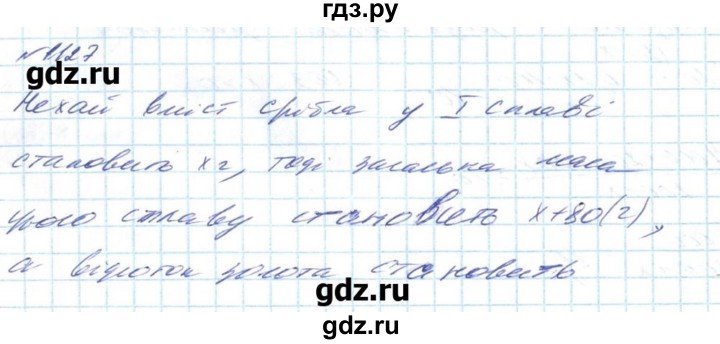 гдз.ру
№1127
гдз.ру
Нехай вміст срібла у I сплаві
становить x г, тоді загальна маса
гдз.ру
цього сплаву становить x+80(г),
а відсоток золота становить
гдз.ру
гдз.ру